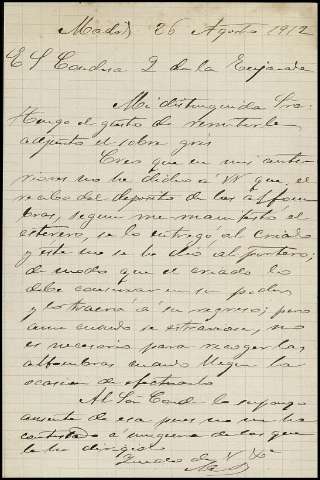 Madrid 26 Agosto 1912
E S Condesa V de la Encjarada
Mi distinguida Sra:
Tengo el gusto de remitirle
adjunto el sobre gris
Creo que en mis anter
iores no he dicho á VV que el
recibo del deposito de las alfom
bras, segun me manifestó el
esterero, se lo entregó al criado
y éste no se ha dio al portero;
de modo que el criado lo
debe conservar en su poder
y lo traerá á su regreso; pero
aun cuando se extraviase, no
es necesario para recoger las
alfombras cuando llegue la
ocasion de efectuarlo
Al Sor Conde lo supongo
ausente de esa pues no me ha
contestado á ninguna de las que
le he dirigido
Quedo de V